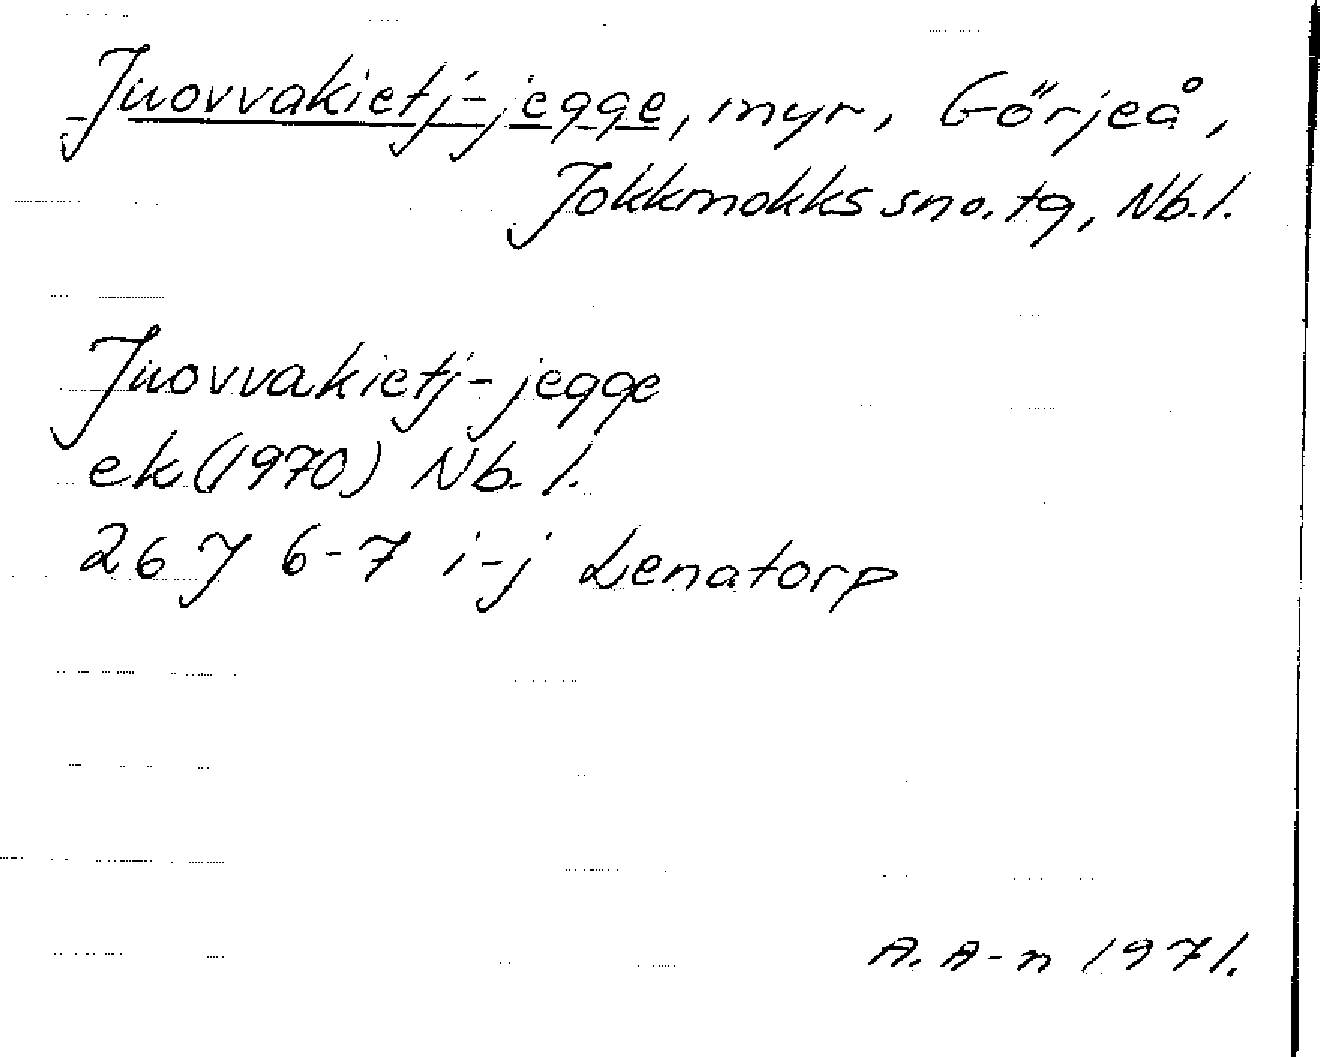 Juovvakietj-jegge, myr, Görjeå,
Jokkmokks sn o. tg, Nb. l.
Juovvakietj-jegge
ek (1970) Nb. l.
26 J 6-7 i-j Lenatorp
A. A-n 1971.